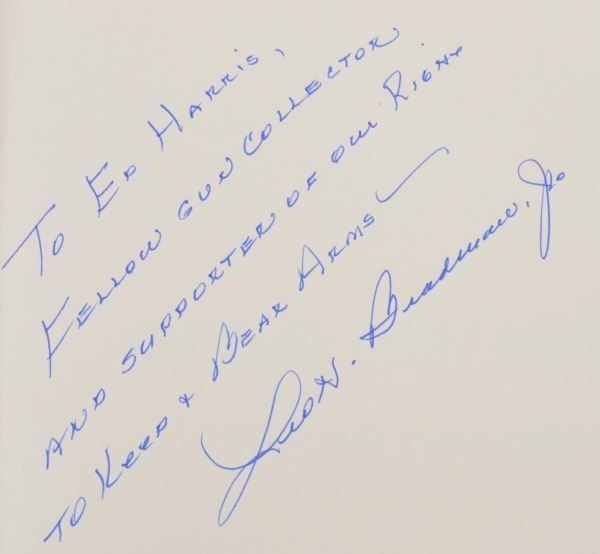 To Ed Harris,
Fellow Gun Collector
and supporter of our Right
to Keep & Bear Arms —
Leo H. Bradman, Jr.